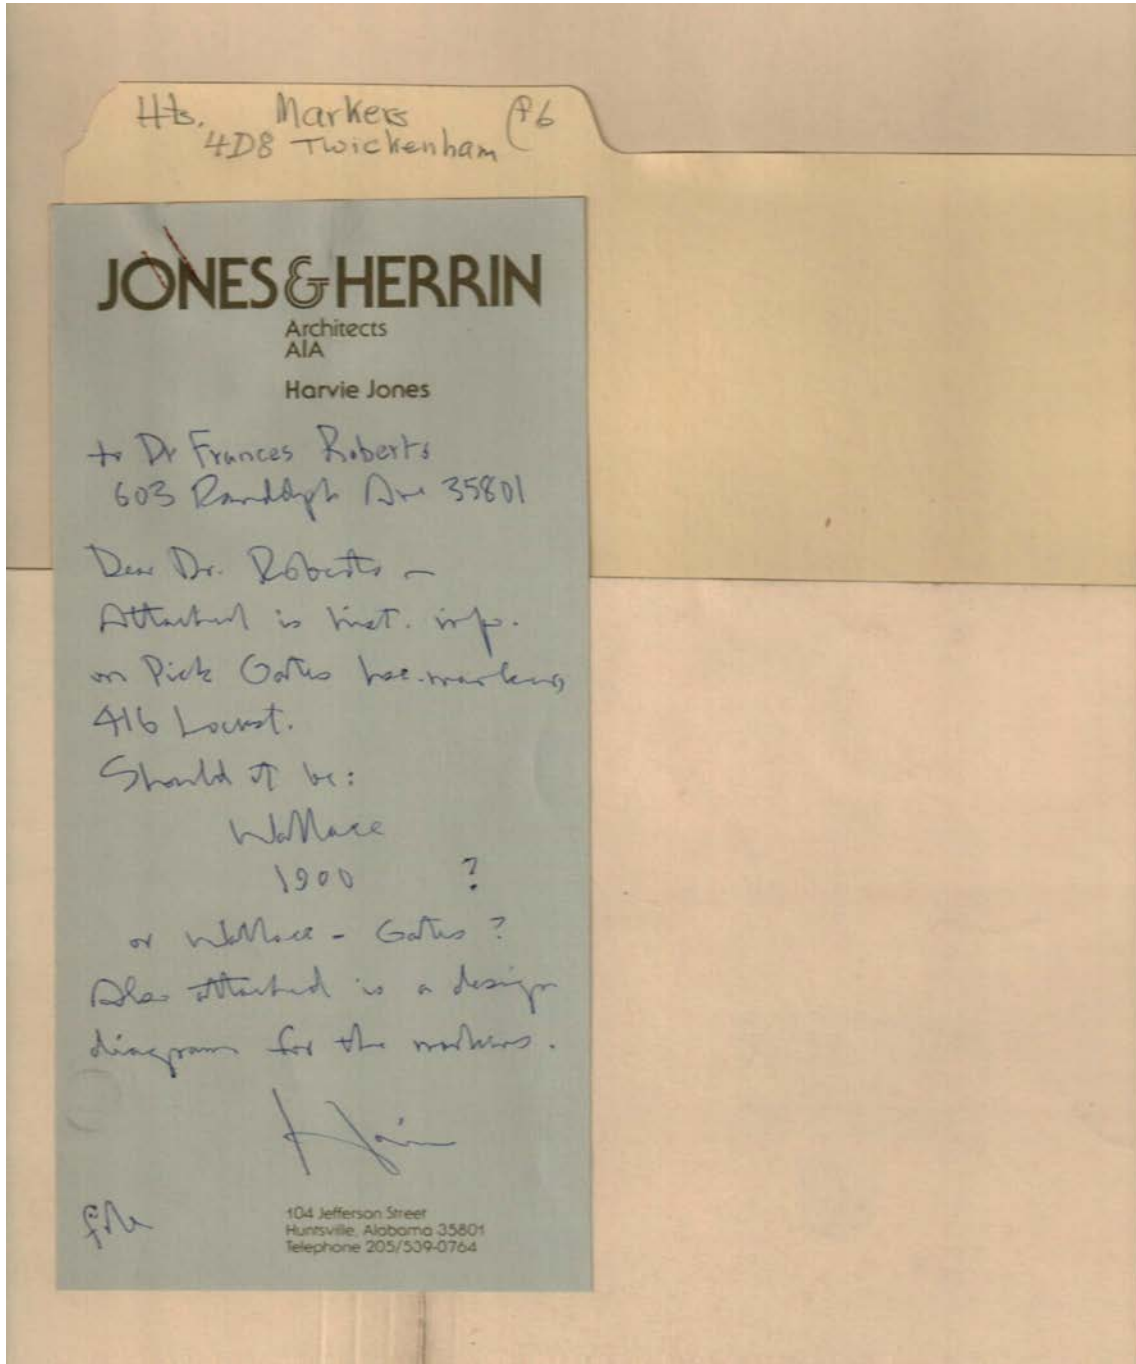 Hts. Markers P6
4D8 Twickenham
JONES & HERRIN
Architects
AIA
Harvie Jones
to Dr Frances Roberts
603 Randolph Ave 35801
Dear Dr. Roberts –
Attached is hist. info.
on Pick Gates hse. markers,
416 Locust.
Should it be:
Wallace
1900 ?
or Wallace - Gates ?
Also attached is a design
diagram for the markers.
file
104 Jefferson Street
Huntsville, Alabama 35801
Telephone 205/539-0764